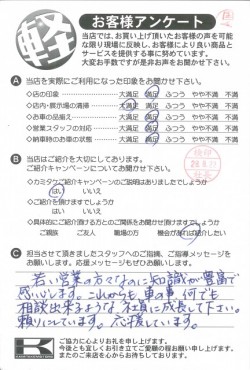 軽
お客様アンケート
当店では、お買い上げ頂いたお客様の声を可能な限り現場に反映し、お客様により良い商品とサービスを提供する事に努めています。
大変お手数ですが是非お声をお聞かせ下さい。
A 当店を実際にご利用になった印象をお聞かせ下さい。
◇店の印象 大満足 満足 ふつう やや不満 不満
◇店内・展示場の清掃 大満足 満足 ふつう やや不満 不満
◇お車の品揃え 大満足 満足 ふつう やや不満 不満
◇営業スタッフの対応 大満足 満足 ふつう やや不満 不満
◇納車時のお車の状態 大満足 満足 ふつう やや不満 不満
B 当店はご紹介を大切にしております。
ご紹介キャンペーンについてお聞かせ下さい。
◇カミタケご紹介キャンペーンのご説明はありましたでしょうか
はい いいえ
◇ご紹介を頂けますでしょうか
はい いいえ
◇具体的にご紹介頂ける方とのご関係をお聞かせ頂けますでしょうか
ご親族 ご友人 職場の方 機会があれば紹介したい
C 担当させて頂きましたスタッフへのご指摘、ご指導メッセージを
お願いします。応援メッセージもぜひお願いします。
若い営業の方々なのに知識が豊富で
感心します。これからも車の事、何でも
相談出来るような社員に成長して下さい。
頼りにしています。応援しています。
K
ご協力に心よりお礼を申し上げます。
今後とも宜しくお引き立てご愛顧の程お願い申し上げます。
またのご来店を心からお待ちしております。